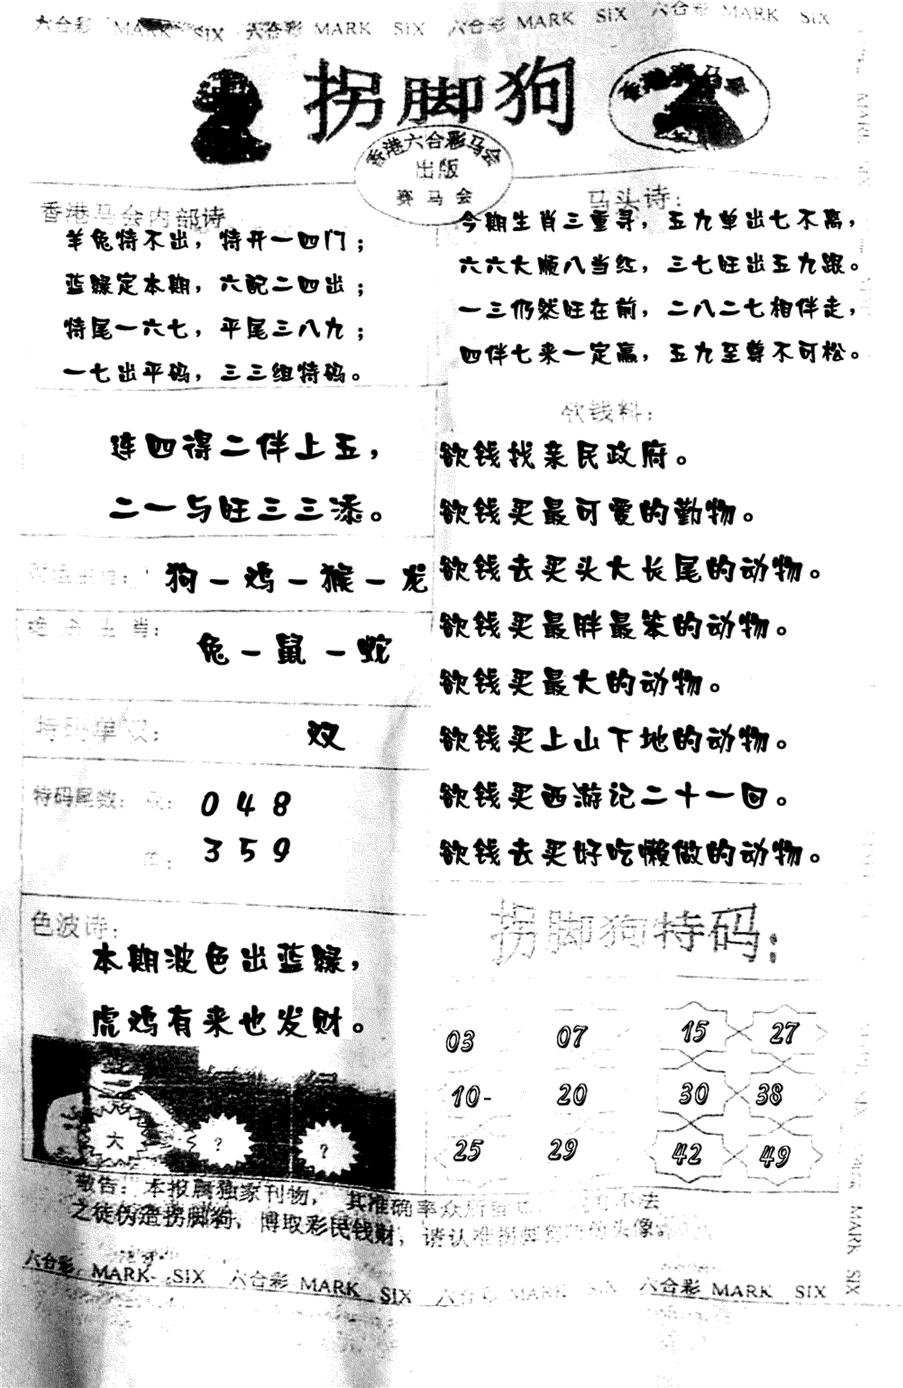 六合彩 MARK SIX 六合彩 MARK SIX 六合彩 MARK SIX 六合彩 MARK SIX
拐脚狗
香港赛马会
香港六合彩马会
出版
赛马会
香港马会内部诗
羊兔特不出，特开一四门；
蓝绿定本期，六配二四出；
特尾一六七，平尾三八九；
一七出平码，三三组特码。
马头诗：
今期生肖三重寻，五九单出七不离，
六六大顺八当红，三七旺出五九跟。
一三仍然旺在前，二八二七相伴走，
四伴七来一定赢，五九至尊不可松。
连四得二伴上五，
二一与旺三三添。
狗－鸡－猴－龙
绝杀生肖：
兔－鼠－蛇
特码单双：
双
特码尾数：双：
0 4 8
3 5 9
色波诗：
本期波色出蓝绿，
虎鸡有来也发财。
大
?
?
欲钱料：
欲钱找亲民政府。
欲钱买最可爱的勤物。
欲钱去买头大长尾的动物。
欲钱买最胖最笨的动物。
欲钱买最大的动物。
欲钱买上山下地的动物。
欲钱买西游记二十一回。
欲钱去买好吃懒做的动物。
拐脚狗特码：
03 07 15 27
10- 20 30 38
25 29 42 49
敬告：本报属独家刊物，其准确率众所 不法
之徒伪造拐脚狗，博取彩民钱财，请认准拐脚 头像。
六合彩 MARK SIX 六合彩 MARK SIX 六合彩 MARK SIX 六合彩 MARK SIX
MARK SIX